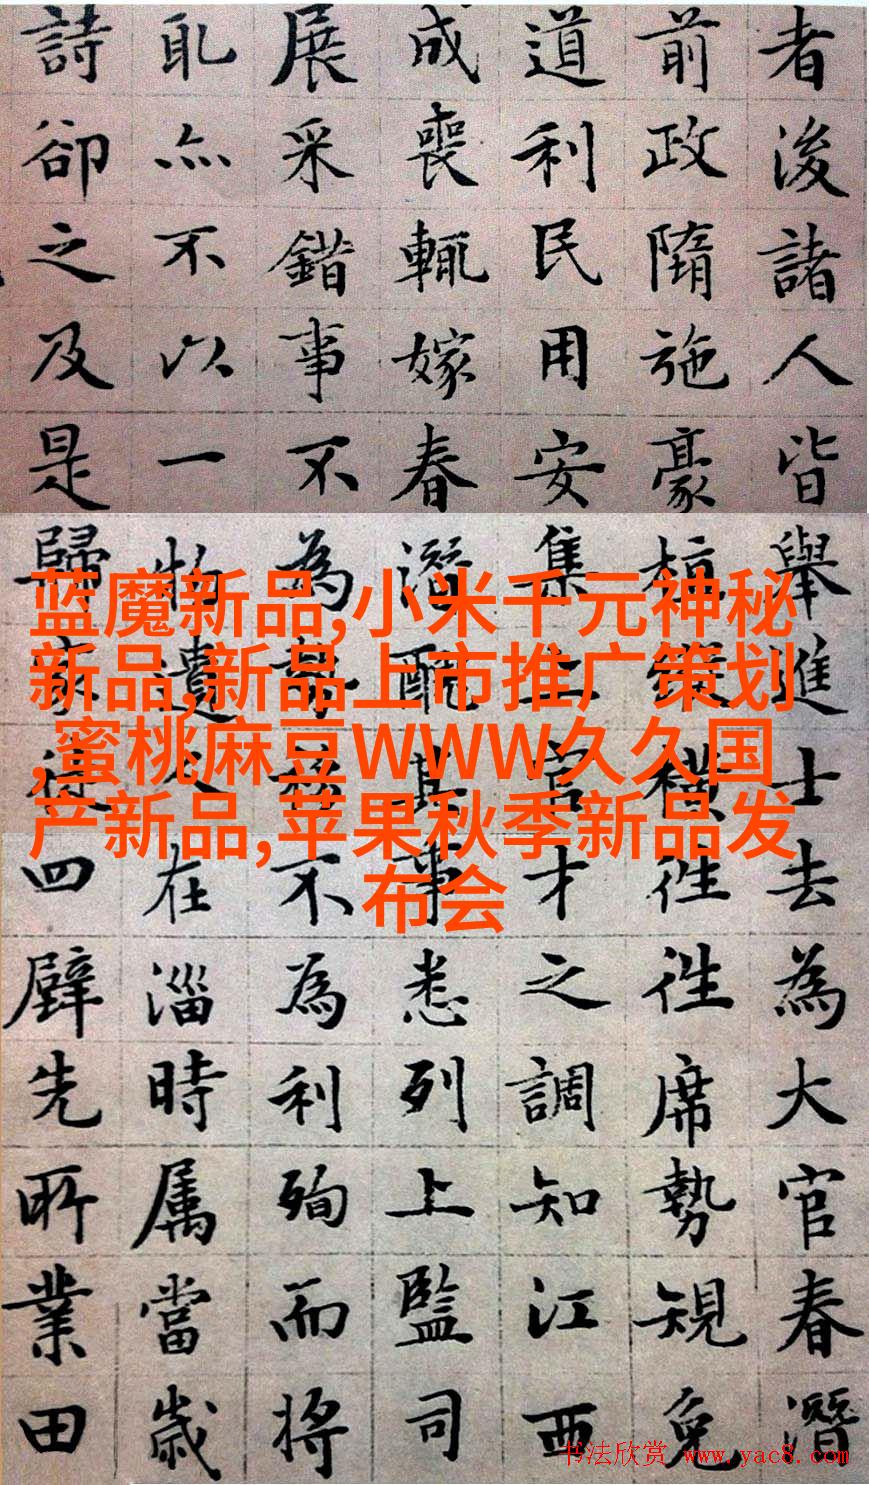 者浚諸人皆舉進士去為大官春潛
前政隋施豪橫徃徃席勢規免
道利民用安集上官才之調知江西
成喪輒嫁春潛其事悉列上監司
展采錯事不為不為利殉而將
耴亦不以一物遺在淄時属當歲
詩卻之及是歸家徒四壁先所業田
蓝魔新品,小米千元神秘
新品,新品上市推广策划
,蜜桃麻豆WWW久久国
产新品,苹果秋季新品发
布会
书法欣赏 www.yac8.com